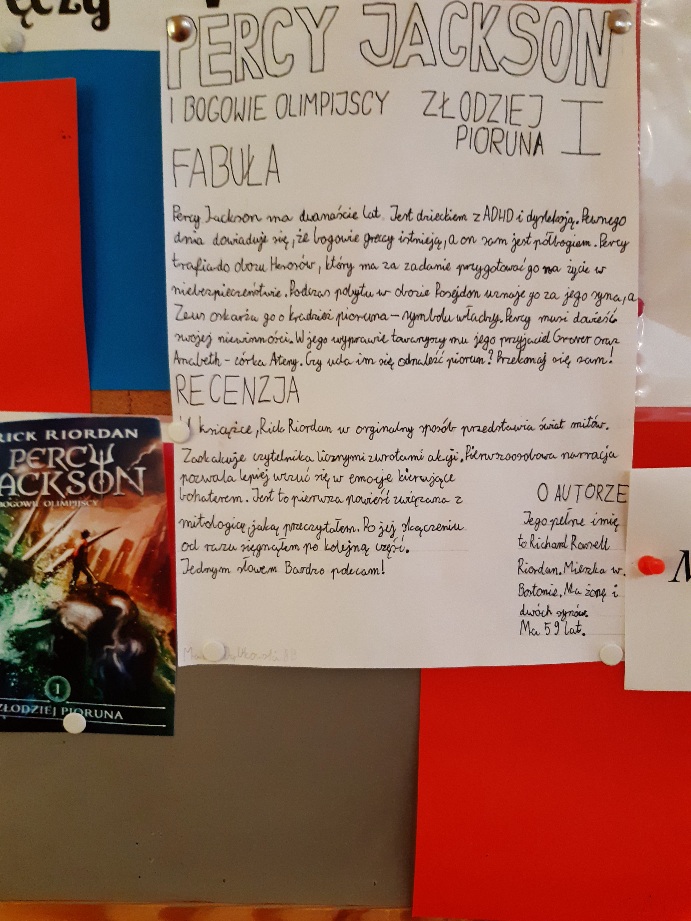 PERCY JACKSON
I BOGOWIE OLIMPIJSCY ZŁODZIEJ I
PIORUNA
FABUŁA
Percy Jackson ma dwanaście lat. Jest dzieckiem z ADHD i dysleksją. Pewnego
dnia dowiaduje się, że bogowie greccy istnieją, a on sam jest półbogiem. Percy
trafia do obozu Herosów, który ma za zadanie przygotować go na życie w
niebezpieczeństwie. Podczas pobytu w obozie Posejdon uznaje go za jego syna, a
Zeus oskarża go o kradzież pioruna - symbolu władzy. Percy musi dowieść
swojej niewinności. W jego wyprawie towarzyszy mu jego przyjaciel Grover oraz
Anabeth - córka Ateny. Czy uda im się odnaleźć piorun? Przekonaj się sam!
RECENZJA
W książce, Rick Riordan w orginalny sposób przedstawia świat mitów.
Zaskakuje czytelnika licznymi zwrotami akcji. Pierwszoosobowa narracja
pozwala lepiej wczuć się w emocje kierujące
bohaterem. Jest to pierwsza powieść związana z
mitologią, jaką przeczytałem. Po jej skończeniu
od razu sięgnąłem po kolejną część.
Jednym słowem Bardzo polecam!
O AUTORZE
Jego pełne imię
to Richard Russell
Riordan. Mieszka w
Bostonie. Ma żonę i
dwóch synów.
Ma 59 lat.
RICK RIORDAN
PERCY
JACKSON
BOGOWIE OLIMPIJSCY
1
ZŁODZIEJ PIORUNA